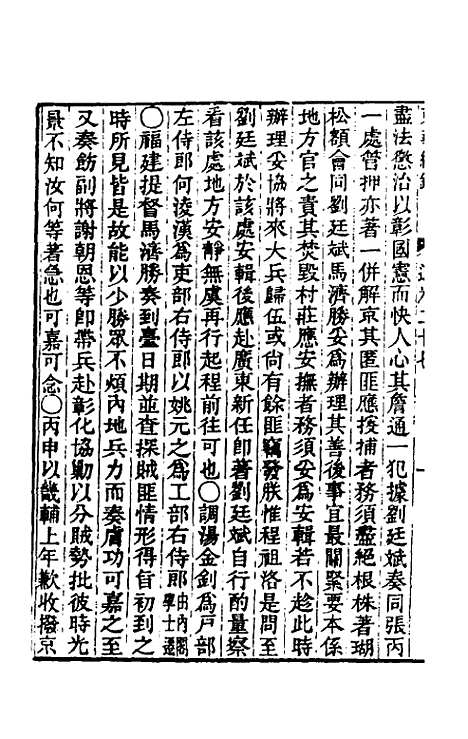 盡法懲治以彰國憲而快人心其詹通一犯據劉廷斌奏同張丙
一處管押亦著一併解京其匿匪應搜捕者務須盡絕根株著瑚
松額會同劉廷斌馬濟勝妥爲辦理其善後事宜最關緊要本係
地方官之責其焚毀村莊應安撫者務須妥爲安輯若不趁此時
辦理妥協將來大兵歸伍或尙有餘匪竊發朕惟程祖洛是問至
劉廷斌於該處安輯後應赴廣東新任卽著劉廷斌自行酌量察
看該處地方安靜無虞再行起程前往可也〇調湯金釗爲戸部
左侍郎何淩漢爲吏部右侍郎以姚元之爲工部右侍郎由內閣學士遷
〇福建提督馬濟勝奏到臺日期並查探賊匪情形得旨初到之
時所見皆是故能以少勝眾不煩內地兵力而奏膚功可嘉之至
又奏飭副將謝朝恩等卽帶兵赴彰化協勦以分賊勢批彼時光
景不知汝何等著急也可嘉可念〇丙申以畿輔上年歉收撥京